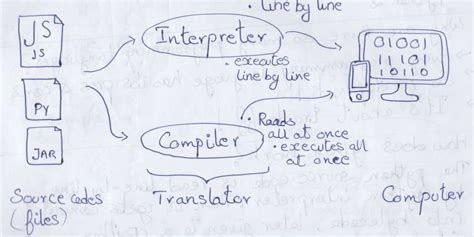 • Line by line
JS
JS
Interpreter
• executes
line by line
01001
11101
10110
PY
JAR
Compiler
• Reads
all at once
• executes all
at once
Source codes
(files)
Translator
Computer